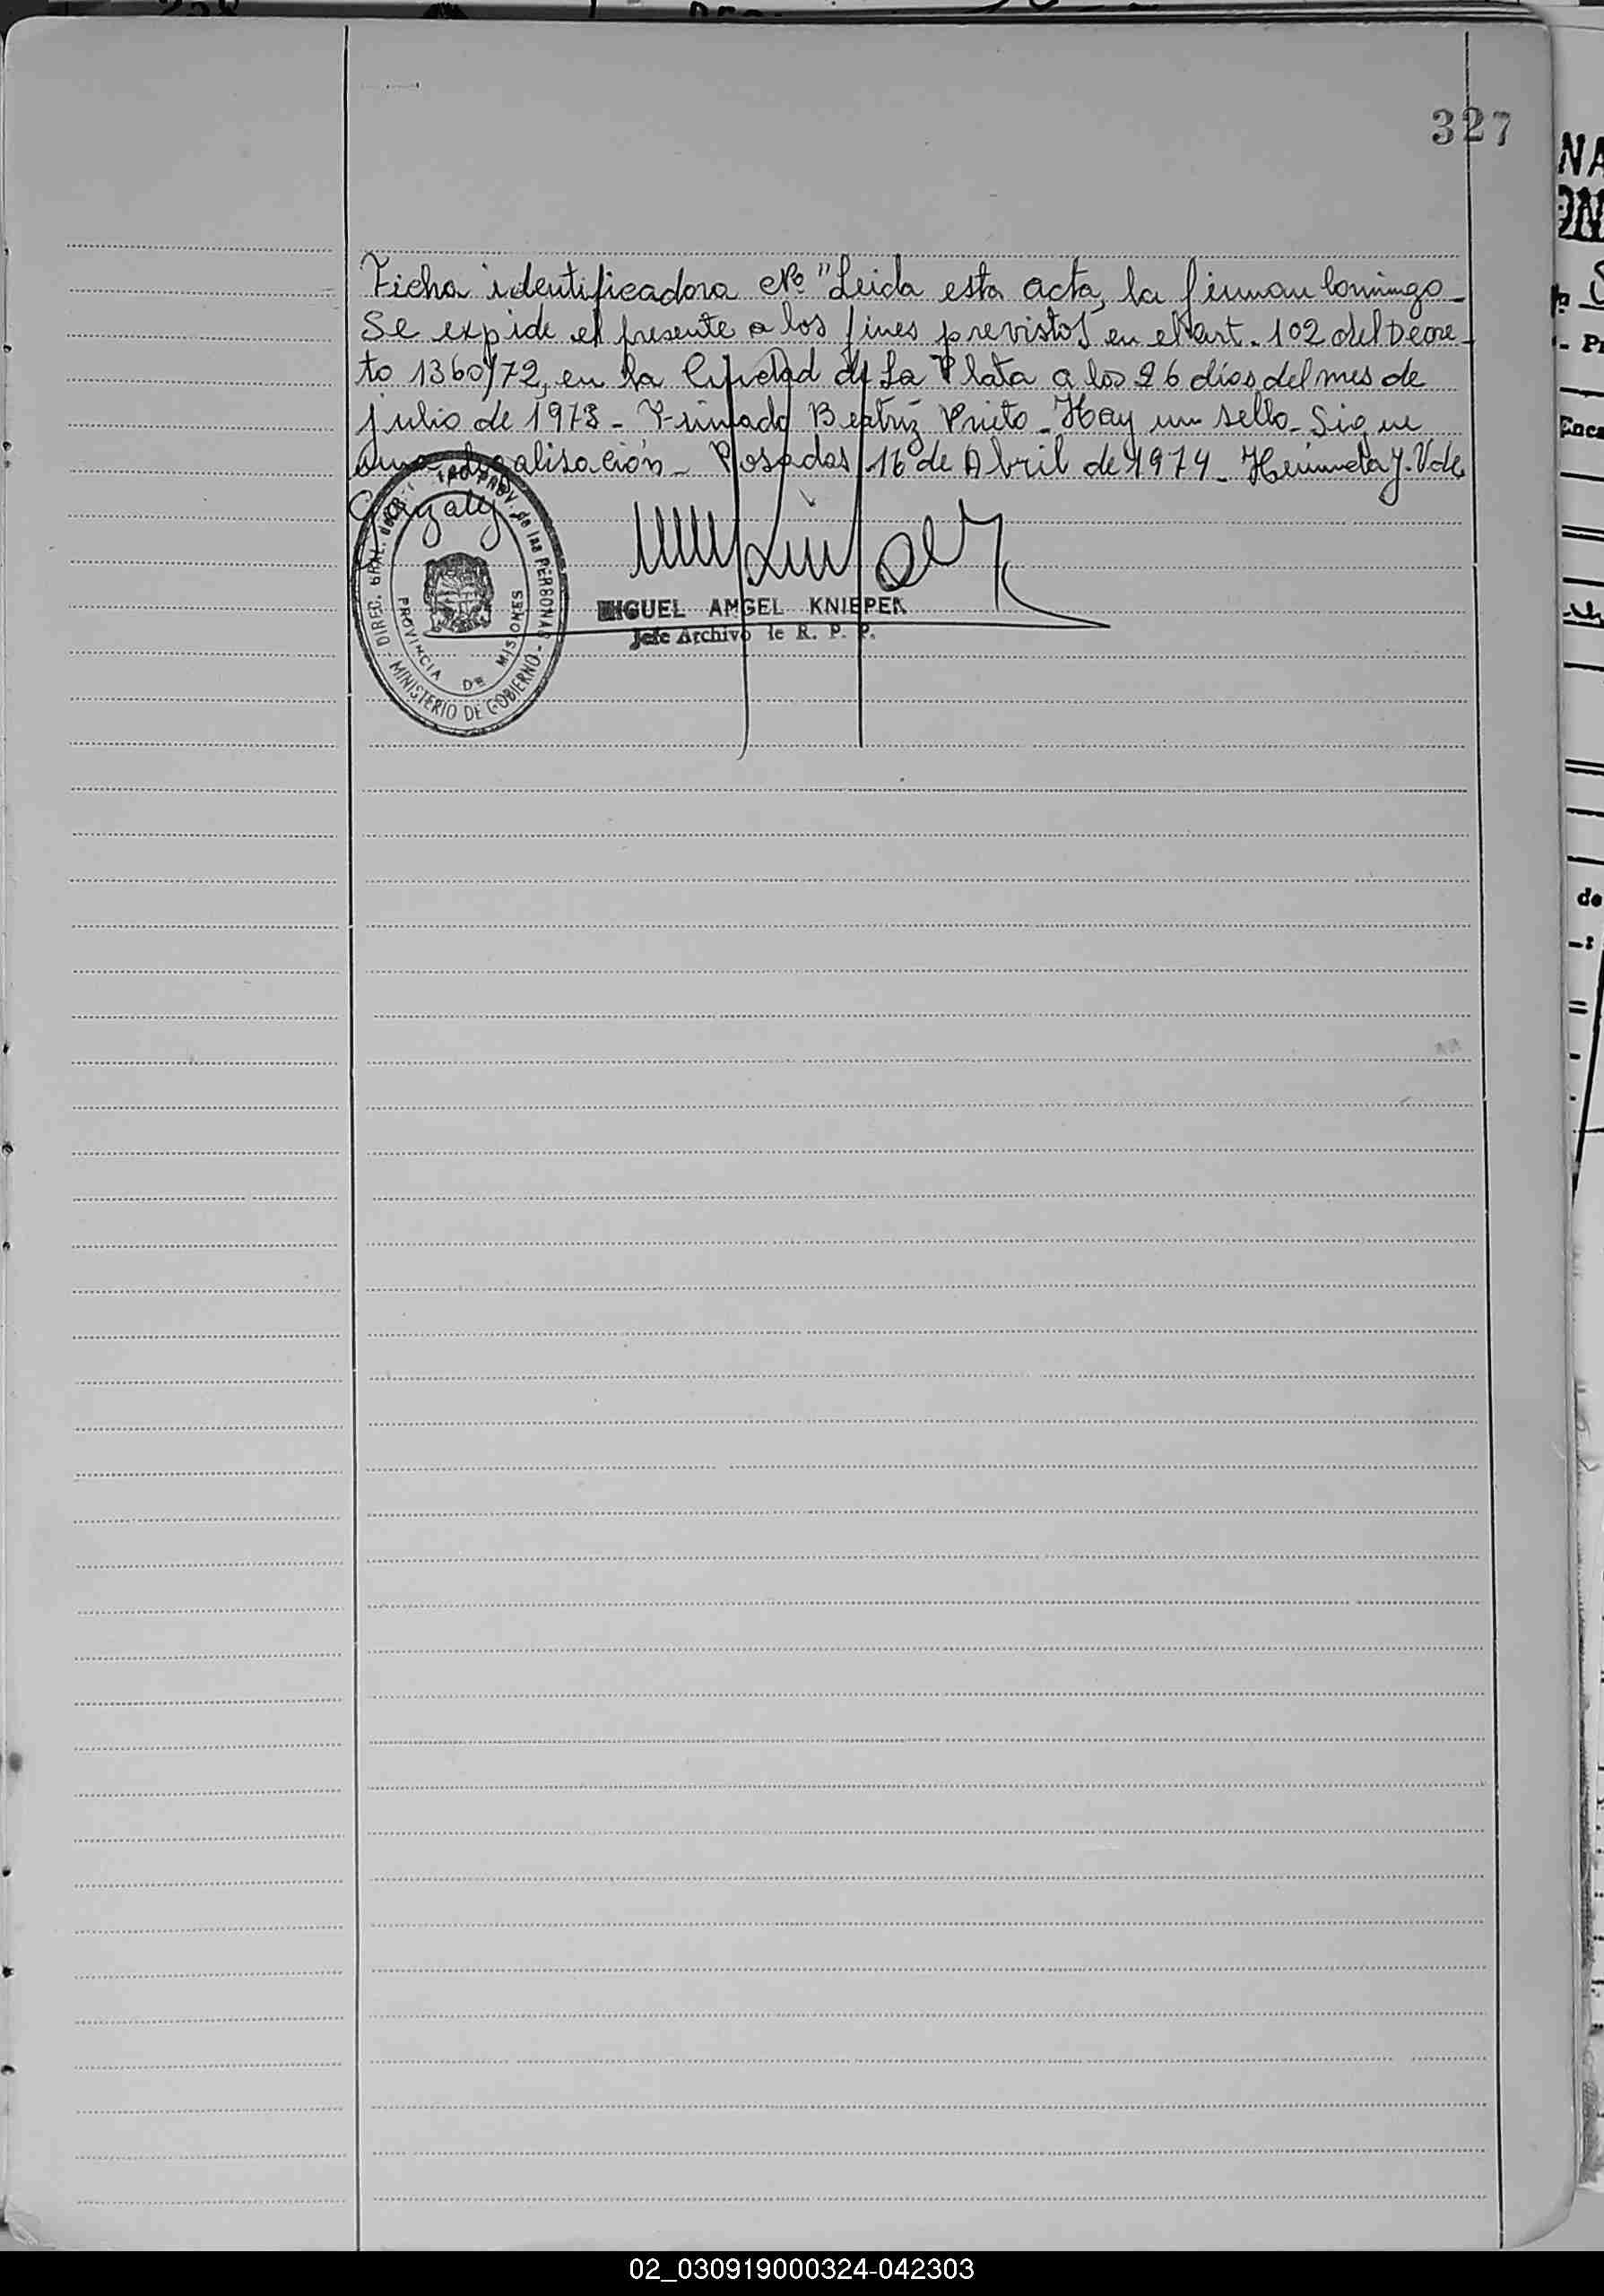 327
Ficha identificadora Nº "Leida esta acta, la firman conmigo_
Se expide el presente a los fines previstos en el art. 102 del Decre_
to 1360/72, en la Ciudad de La Plata a los 26 dias del mes de
julio de 1973 - Firmado Beatriz Prieto - Hay un sello - Sigue
una legalisación - Posadas 16 de Abril de 1974 - V. de
Gonzalez
DIREC. GRAL. del PROV. de las PERSONAS - MINISTERIO DE GOBIERNO
PROVINCIA DE MISIONES
MIGUEL ANGEL KNIEPER
Jefe Archivo de R. P. P.
02_030919000324-042303